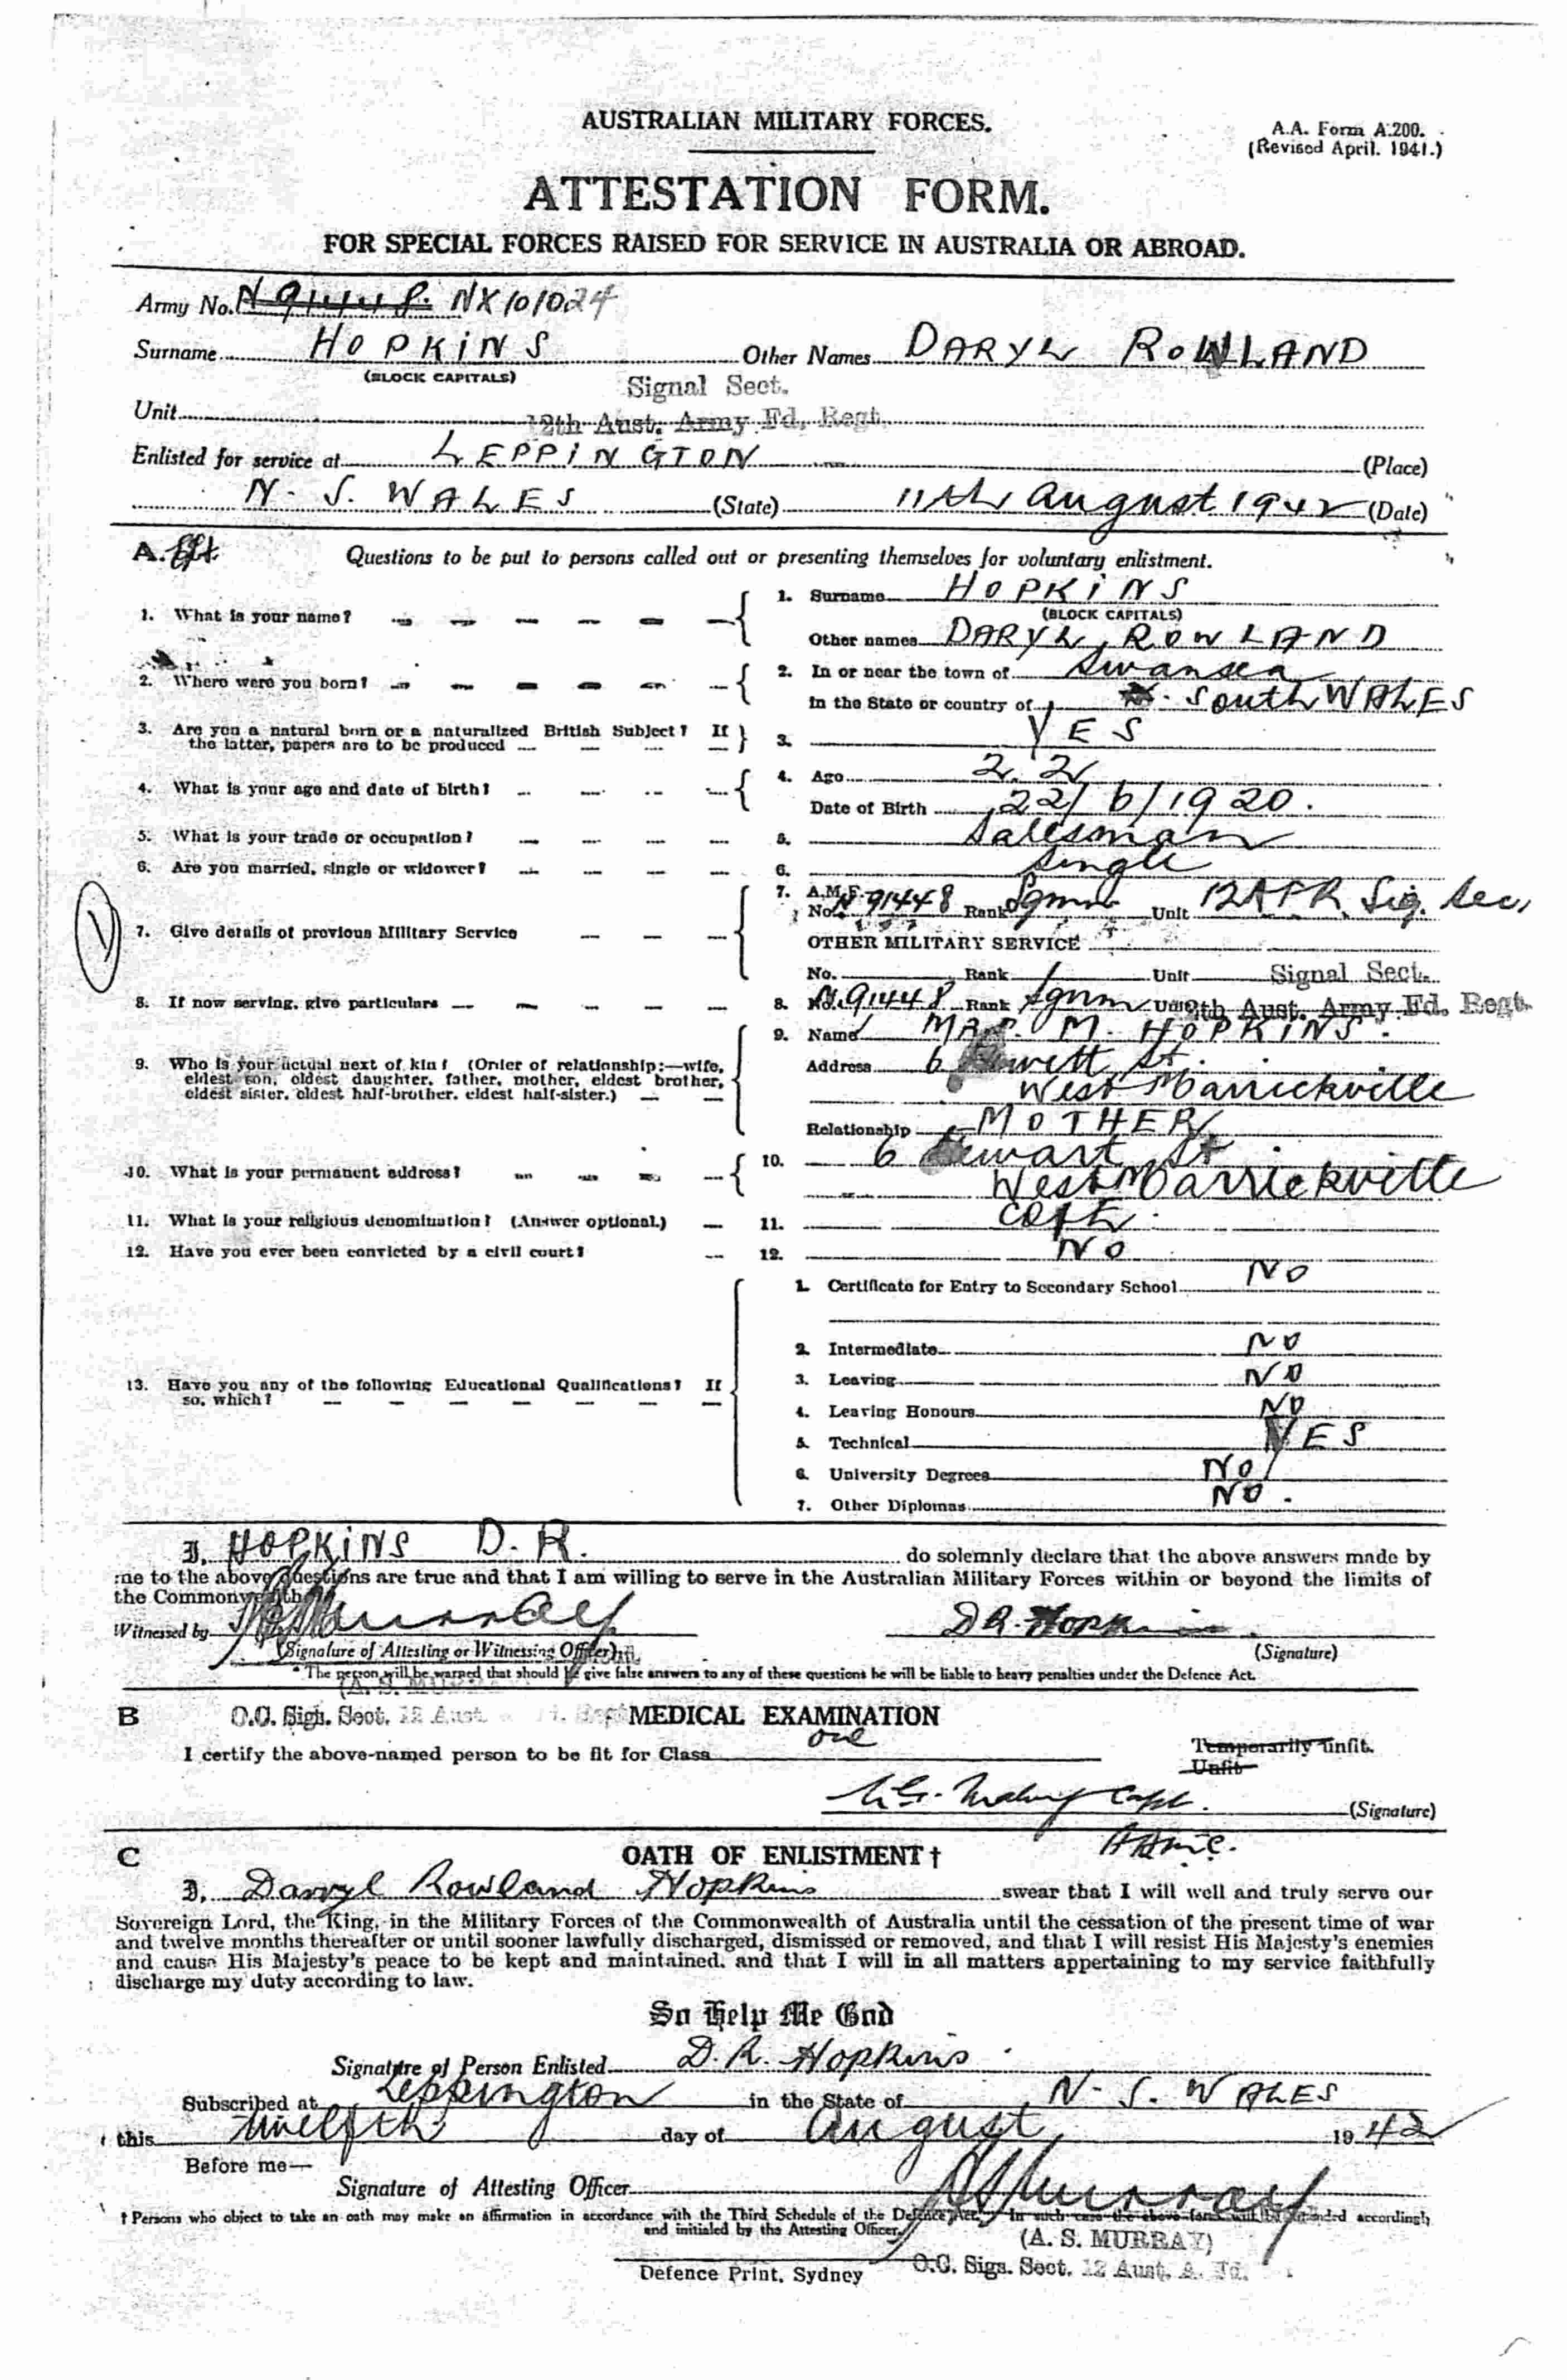 AUSTRALIAN MILITARY FORCES.
A.A. Form A.200.
(Revised April. 1941.)
ATTESTATION FORM.
FOR SPECIAL FORCES RAISED FOR SERVICE IN AUSTRALIA OR ABROAD.
Army No. N 91448. NX101024
Surname HOPKINS Other Names DARYL ROWLAND
(BLOCK CAPITALS)
Signal Sect.
Unit 12th Aust. Army Fd. Regt.
Enlisted for service at LEPPINGTON (Place)
N. S. WALES (State) 11th August 1942 (Date)
A. Questions to be put to persons called out or presenting themselves for voluntary enlistment.
1. What is your name? 1. Surname HOPKINS
(BLOCK CAPITALS)
Other names DARYL ROWLAND
2. Where were you born? 2. In or near the town of Swansea
in the State or country of SOUTH WALES
3. Are you a natural born or a naturalized British Subject? If
the latter, papers are to be produced 3. YES
4. What is your age and date of birth? 4. Age 22
Date of Birth 22/6/1920.
5. What is your trade or occupation? 5. Salesman
6. Are you married, single or widower? 6. Single
7. Give details of previous Military Service 7. A.M.F.
No. N 91448 Rank Sgmn Unit 12 AFR Sig. Sec,
OTHER MILITARY SERVICE
No. Rank Unit Signal Sect.
8. If now serving, give particulars 8. No. N 91448 Rank Sgnm Unit 12th Aust. Army Fd. Regt.
9. Who is your actual next of kin? (Order of relationship:—wife,
eldest son, oldest daughter, father, mother, eldest brother,
eldest sister, oldest half-brother, eldest half-sister.)
9. Name MRS. M. HOPKINS.
Address 6 St.
West Marrickville
Relationship MOTHER
10. What is your permanent address? 10. 6 St.
West Marrickville
11. What is your religious denomination? (Answer optional.) 11. C of E.
12. Have you ever been convicted by a civil court? 12. NO
13. Have you any of the following Educational Qualifications? If
so, which?
1. Certificate for Entry to Secondary School NO
2. Intermediate NO
3. Leaving NO
4. Leaving Honours NO
5. Technical YES
6. University Degrees NO
7. Other Diplomas NO.
I, HOPKINS D. R. do solemnly declare that the above answers made by
me to the above questions are true and that I am willing to serve in the Australian Military Forces within or beyond the limits of
the Commonwealth
Witnessed by D.R. Hopkins
(Signature of Attesting or Witnessing Officer) (Signature)
* The person will be warned that should he give false answers to any of these questions he will be liable to heavy penalties under the Defence Act.
(A. S. MURRAY)
B O.C. Sigs. Sect. 12 Aust MEDICAL EXAMINATION
I certify the above-named person to be fit for Class one Temporarily unfit.
Unfit
Capt. (Signature)
AAMC.
C OATH OF ENLISTMENT †
I, Darryl Rowland Hopkins swear that I will well and truly serve our
Sovereign Lord, the King, in the Military Forces of the Commonwealth of Australia until the cessation of the present time of war
and twelve months thereafter or until sooner lawfully discharged, dismissed or removed, and that I will resist His Majesty's enemies
and cause His Majesty's peace to be kept and maintained, and that I will in all matters appertaining to my service faithfully
discharge my duty according to law.
So Help Me God
Signature of Person Enlisted D. R. Hopkins
Subscribed at Leppington in the State of N. S. WALES
this twelfth day of August 1942
Before me—
Signature of Attesting Officer A S Murray
† Persons who object to take an oath may make an affirmation in accordance with the Third Schedule of the Defence Act. In such case the above form will be amended accordingly
and initialed by the Attesting Officer.
(A. S. MURRAY)
O.C. Sigs. Sect. 12 Aust. A. Fd.
Defence Print, Sydney